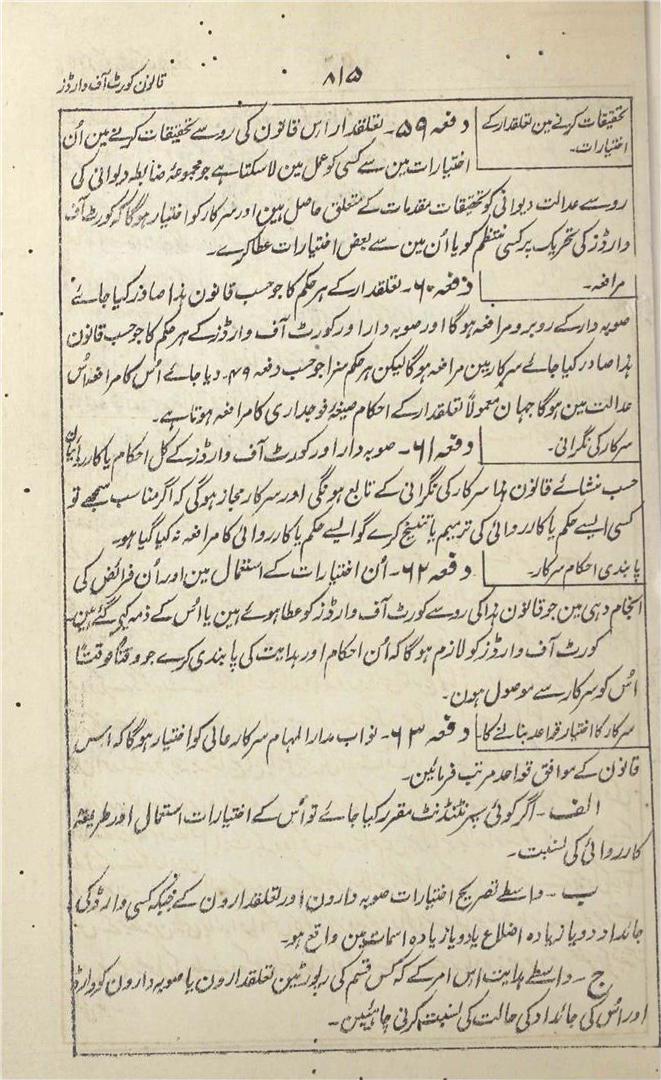 قانون کورٹ آف وارڈز
۸۱۵
تحقیقات کرنے مین تعلقدار کے
اختیارات۔
دفعہ ۵۹۔ تعلقدار اس قانون کی روسے تحقیقات کرنے مین اُن
اختیارات مین سے کسی کو عمل مین لا سکتا ہے جو مجموعۂ ضابطہ دیوانی کی
روسے عدالت دیوانی کو تحقیقات مقدمات کے متعلق حاصل ہین اور سرکار کو اختیار ہوگا کہ کورٹ آف
وارڈز کی تحریک پر کسی منتظم کو یا اُن مین سے بعض اختیارات عطا کرے۔
مرافعہ۔
دفعہ ۶۰۔ تعلقدار کے ہر حکم کا جو حسب قانون ہذا صادر کیا جائے
صوبہ دار کے روبرو مرافعہ ہوگا اور صوبہ دار اور کورٹ آف وارڈز کے ہر حکم کا جو حسب قانون
ہذا صادر کیا جائے سرکار مین مرافعہ ہوگا لیکن ہر حکم سزا جو حسب دفعہ ۴۹۔ دیا جائے اُس کا مرافعہ اُس
عدالت مین ہوگا جہان معمولاً تعلقدار کے احکام صیغۂ فوجداری کا مرافعہ ہوتا ہے۔
سرکار کی نگرانی۔
دفعہ ۶۱۔ صوبہ دار اور کورٹ آف وارڈز کے کل احکام یا کارروائیان
حسب منشائے قانون ہذا سرکار کی نگرانی کے تابع ہونگی اور سرکار مجاز ہوگی کہ اگر مناسب سمجھے تو
کسی ایسے حکم یا کارروائی کی ترمیم یا تنسیخ کرے گو ایسے حکم یا کارروائی کا مرافعہ نہ کیا گیا ہو۔
پابندی احکام سرکار۔
دفعہ ۶۲۔ اُن اختیارات کے استعمال مین اور اُن فرائض کی
انجام دہی مین جو قانون ہذا کی روسے کورٹ آف وارڈز کو عطا ہوئے ہین یا اُس کے ذمہ کیے گئے ہین
کورٹ آف وارڈز کو لازم ہوگا کہ اُن احکام اور ہدایت کی پابندی کرے جو وقتاً فوقتاً
اُس کو سرکار سے موصول ہون۔
سرکار کا اختیار قواعد بنانے کا۔
دفعہ ۶۳۔ نواب مدار المہام سرکار عالی کو اختیار ہوگا کہ اس
قانون کے موافق قواعد مرتب فرمائین۔
الف۔ اگر کوئی سپرنٹنڈنٹ مقرر کیا جائے تو اُس کے اختیارات استعمال اور طریقۂ
کارروائی کی نسبت۔
ب۔ واسطے تصریح اختیارات صوبہ دارون اور تعلقدارون کے جبکہ کسی وارڈ کی
جائداد دو یا زیادہ اضلاع یا دو یا زیادہ اسمات مین واقع ہو۔
ج۔ واسطے ہدایت اس امر کے کہ کس قسم کی رپورٹین تعلقدارون یا صوبہ دارون کو وارڈ
اور اُس کی جائداد کی حالت کی نسبت کرنی چاہئین۔